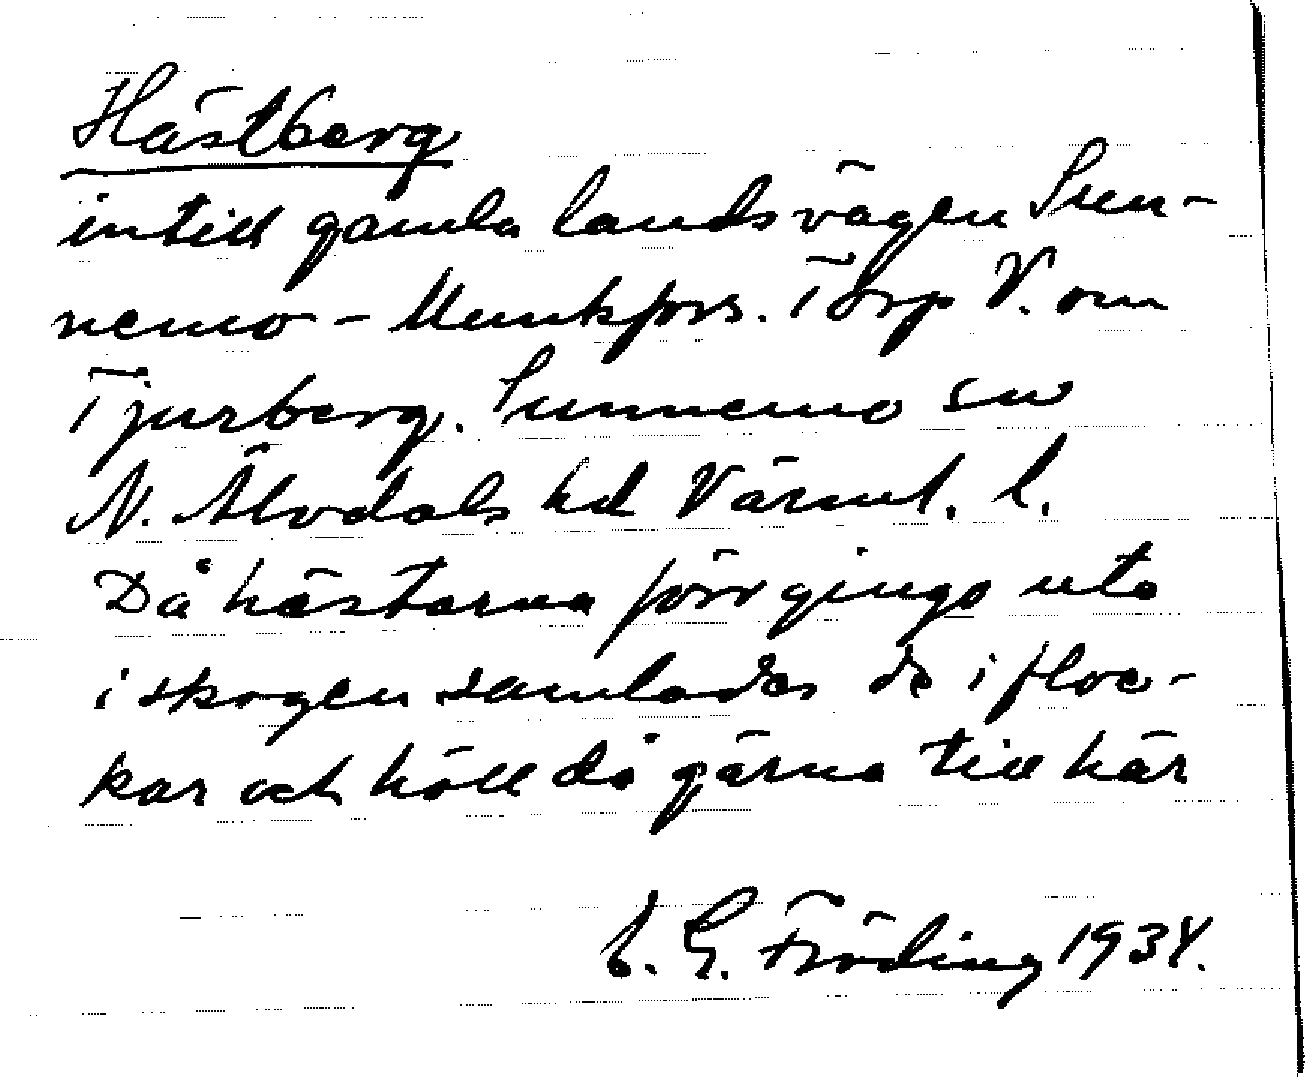 Hästberg
intill gamla landsvägen Sun-
nemo - Munkfors. Torp V. om
Tjurberg. Sunnemo sn
N. Älvdals hd Värml. l.
Då hästarna förr gingo ute
i skogen samlades de i floc-
kar och höll då gärna till här
E. G. Fröding 1934.